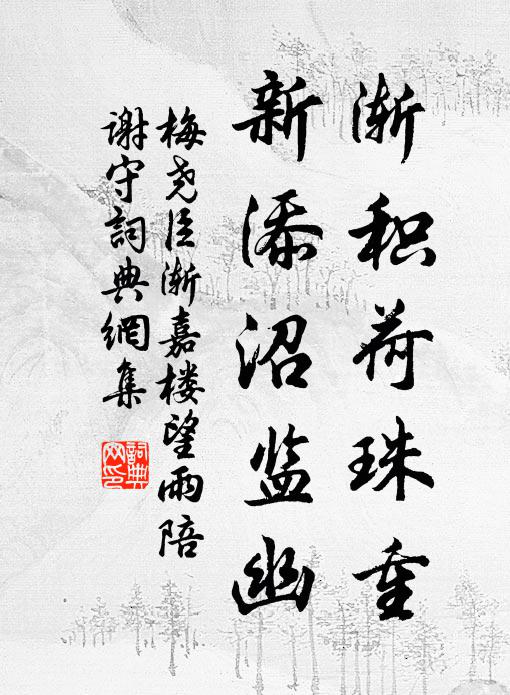 渐积荷珠重
新添沼监幽
梅尧臣渐嘉楼望雨陪
谢守詞典網集
詞典網印